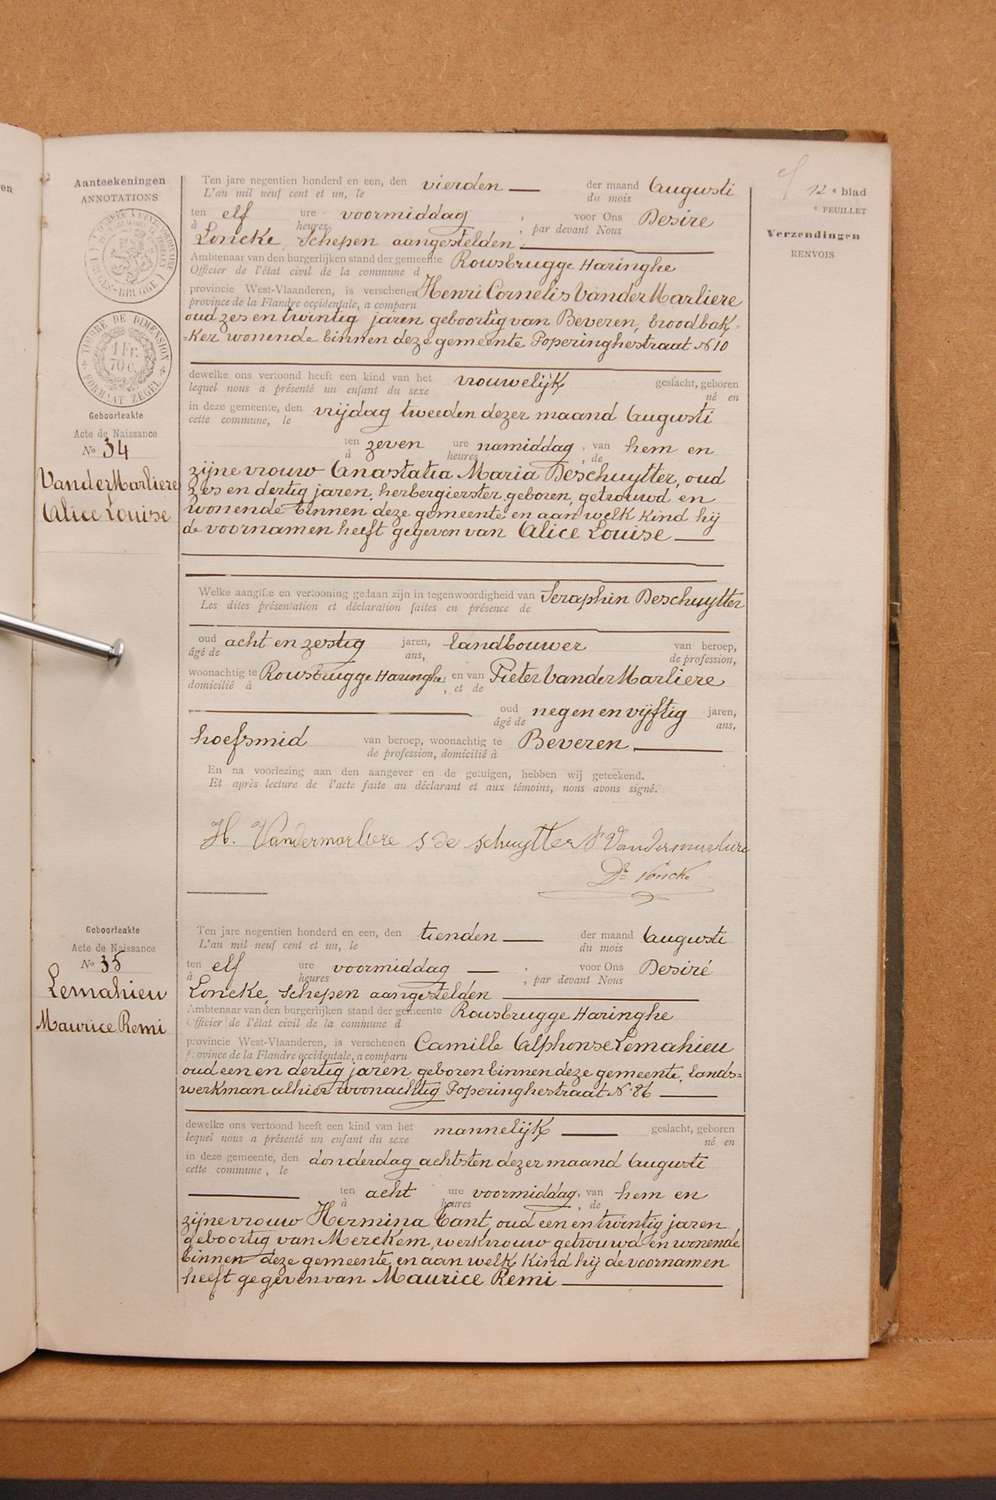 Aanteekeningen
ANNOTATIONS
TIMBRE DE DIMENSION
1 FR.
70 C.
FORMAAT ZEGEL
12e blad
e FEUILLET
Verzendingen
RENVOIS
Ten jare negentien honderd en een, den vierden der maand Augusti
L'an mil neuf cent et un, le du mois
ten elf ure voormiddag, voor Ons Desiré
à heures, par devant Nous
Loncke, Schepen aangestelden
Ambtenaar van den burgerlijken stand der gemeente Rousbrugge Haringhe
Officier de l'état civil de la commune d
provincie West-Vlaanderen, is verschenen Henri Cornelis VanderMarliere
province de la Flandre occidentale, a comparu
oud zes en twintig jaren geboortig van Beveren, broodbak-
ker wonende binnen deze gemeente Poperinghestraat No 10
dewelke ons vertoond heeft een kind van het vrouwelijk geslacht, geboren
lequel nous a présenté un enfant du sexe né en
in deze gemeente, den vrijdag tweeden dezer maand Augusti
cette commune, le
ten zeven ure namiddag, van hem en
à heures, de
zijne vrouw Anastatia Maria Deschuytter, oud
zes en dertig jaren, herbergierster, geboren, getrouwd en
wonende binnen deze gemeente en aan welk kind hij
de voornamen heeft gegeven van Alice Louise
Geboorteakte
Acte de Naissance
No 34
VanderMarliere
Alice Louise
Welke aangifte en vertooning gedaan zijn in tegenwoordigheid van Seraphin Deschuytter
Les dites présentation et déclaration faites en présence de
oud acht en zestig jaren, landbouwer van beroep,
âgé de ans, de profession,
woonachtig te Rousbrugge Haringhe en van Pieter VanderMarliere
domicilié à, et de
oud negen en vijftig jaren,
âgé de ans,
hoefsmid van beroep, woonachtig te Beveren
de profession, domicilié à
En na voorlezing aan den aangever en de getuigen, hebben wij geteekend.
Et après lecture de l'acte faite au déclarant et aux témoins, nous avons signé.
H. Vandermarliere S de schuytter
Dré Loncke
Geboorteakte
Acte de Naissance
No 35
Lemahieu
Maurice Remi
Ten jare negentien honderd en een, den tienden der maand Augusti
L'an mil neuf cent et un, le du mois
ten elf ure voormiddag, voor Ons Desiré
à heures, par devant Nous
Loncke, Schepen aangestelden
Ambtenaar van den burgerlijken stand der gemeente Rousbrugge Haringhe
Officier de l'état civil de la commune d
provincie West-Vlaanderen, is verschenen Camille Alphonse Lemahieu
province de la Flandre occidentale, a comparu
oud een en dertig jaren geboren binnen deze gemeente, lands=
werkman alhier woonachtig Poperinghestraat No 86
dewelke ons vertoond heeft een kind van het mannelijk geslacht, geboren
lequel nous a présenté un enfant du sexe né en
in deze gemeente, den donderdag achtsten dezer maand Augusti
cette commune, le
ten acht ure voormiddag, van hem en
à heures, de
zijne vrouw Hermina Cant, oud een en twintig jaren
geboortig van Merckem, werkvrouw getrouwd en wonende
binnen deze gemeente, en aan welk kind hij de voornamen
heeft gegeven van Maurice Remi